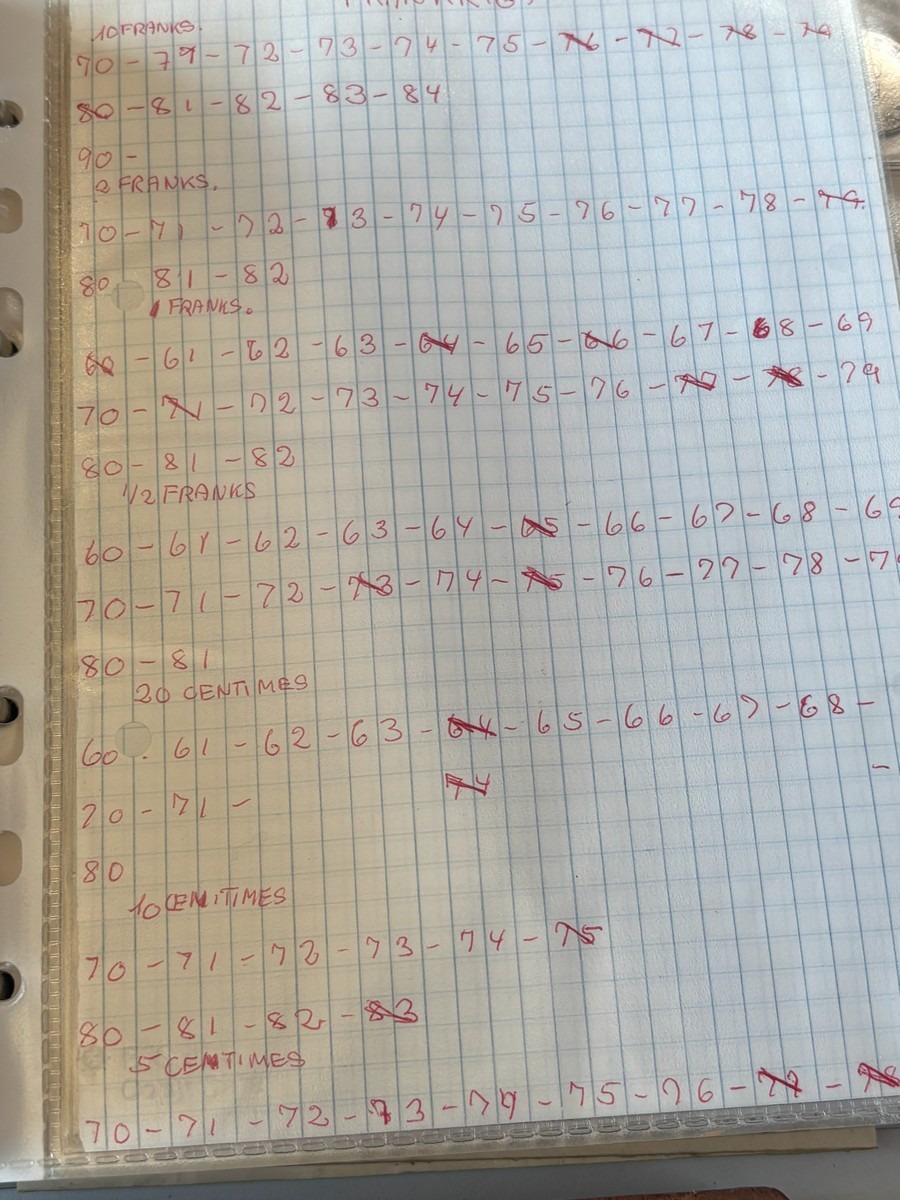 10 FRANKS.
70 - 71 - 72 - 73 - 74 - 75 - 76 - 77 - 78 - 79
80 - 81 - 82 - 83 - 84
90 -
2 FRANKS.
70 - 71 - 72 - 73 - 74 - 75 - 76 - 77 - 78 - 79
80 81 - 82
1 FRANKS.
60 - 61 - 62 - 63 - 64 - 65 - 66 - 67 - 68 - 69
70 - 71 - 72 - 73 - 74 - 75 - 76 - 77 - 78 - 79
80 - 81 - 82
1/2 FRANKS
60 - 61 - 62 - 63 - 64 - 65 - 66 - 67 - 68 - 69
70 - 71 - 72 - 73 - 74 - 75 - 76 - 77 - 78 - 79
80 - 81
20 CENTIMES
60 - 61 - 62 - 63 - 64 - 65 - 66 - 67 - 68 -
70 - 71 - 74 -
80
10 CENTIMES
70 - 71 - 72 - 73 - 74 - 75
80 - 81 - 82 - 83
5 CENTIMES
70 - 71 - 72 - 73 - 74 - 75 - 76 - 77 - 78